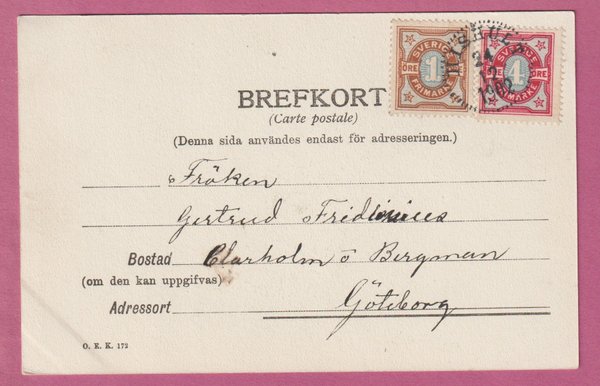 SVERIGE
ÖRE 1
FRIMÄRKE
SVERIGE
4 ÖRE
FRIMÄRKE
24
12
BREFKORT
(Carte postale)
(Denna sida användes endast för adresseringen.)
Fröken
Gertrud
Bostad Clarholm o Bergman
(om den kan uppgifvas)
Adressort Göteborg
O. E. K. 172